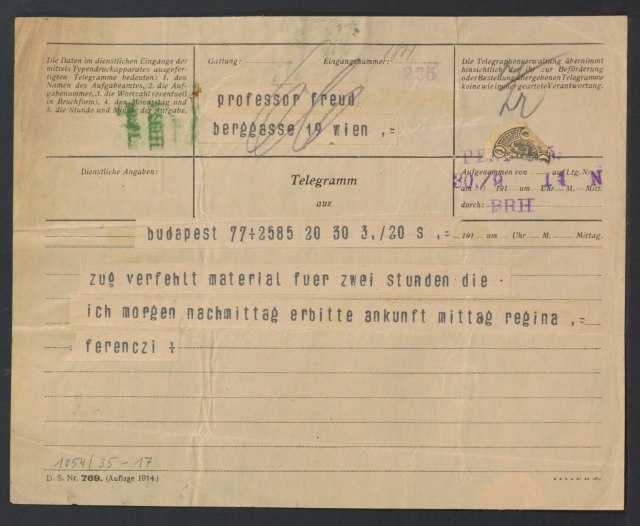 Die Daten im dienstlichen Eingange der
mittels Typendruckapparates ausgefer-
tigten Telegramme bedeuten: 1. den
Namen des Aufgabeamtes, 2. die Auf-
gabenummer, 3. die Wortzahl (eventuell
in Bruchform), 4. den Monatstag und
5. die Stunde und Minute der Aufgabe.
Gattung:
Eingangsnummer:
235
Die Telegraphenverwaltung übernimmt
hinsichtlich der ihr zur Beförderung
oder Bestellung übergebenen Telegramme
keine wie immer geartete Verantwortung.
professor freud
berggasse 19 wien ,=
Dienstliche Angaben:
Telegramm
aus
Aufgenommen von auf Ltg. Nr.
30./9 191 um Uhr M. Mitt. 11 N
durch: BRH
budapest 77+2585 20 30 3,/20 s ,=
191 um Uhr M. Mittag.
zug verfehlt material fuer zwei stunden die -
ich morgen nachmittag erbitte ankunft mittag regina ,=
ferenczi +
1054/35-17
D. S. Nr. 769. (Auflage 1914.)